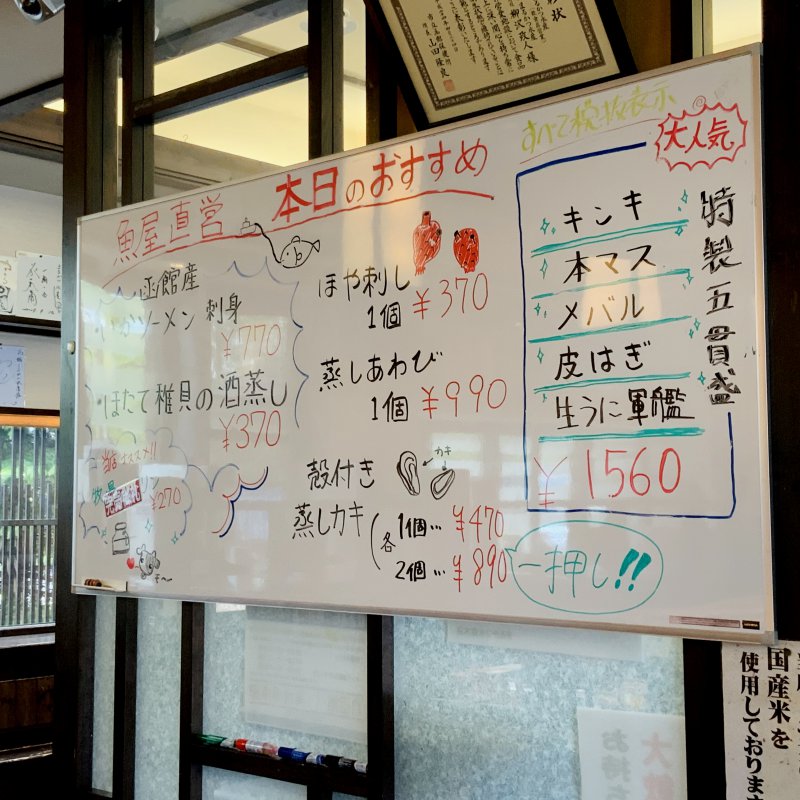 すべて税抜表示
魚屋直営
本日のおすすめ
大人気
函館産
いかソーメン刺身
¥770
ほたて稚貝の酒蒸し
¥370
当店オススメ!!
¥270
ほや刺し
1個 ¥370
蒸しあわび
1個 ¥990
殻付き
蒸しカキ
カキ
各
1個… ¥470
2個… ¥890
特製五貫盛
キンキ
本マス
メバル
皮はぎ
生うに軍艦
¥1560
一押し!!
国産米を
使用しております